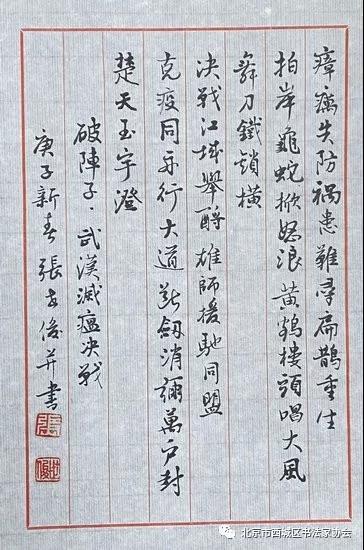 瘴癘失防禍患難尋扁鵲重生
拍岸龜蛇掀怒浪黄鶴樓頭唱大風
舞刀鐵鎖横
决戰江城舉酹雄師援馳同盟
克疫同舟行大道劍消彌萬户封
楚天玉宇澄
破陣子·武漢滅瘟决戰
庚子新春張俊并書
北京市西城区书法家协会